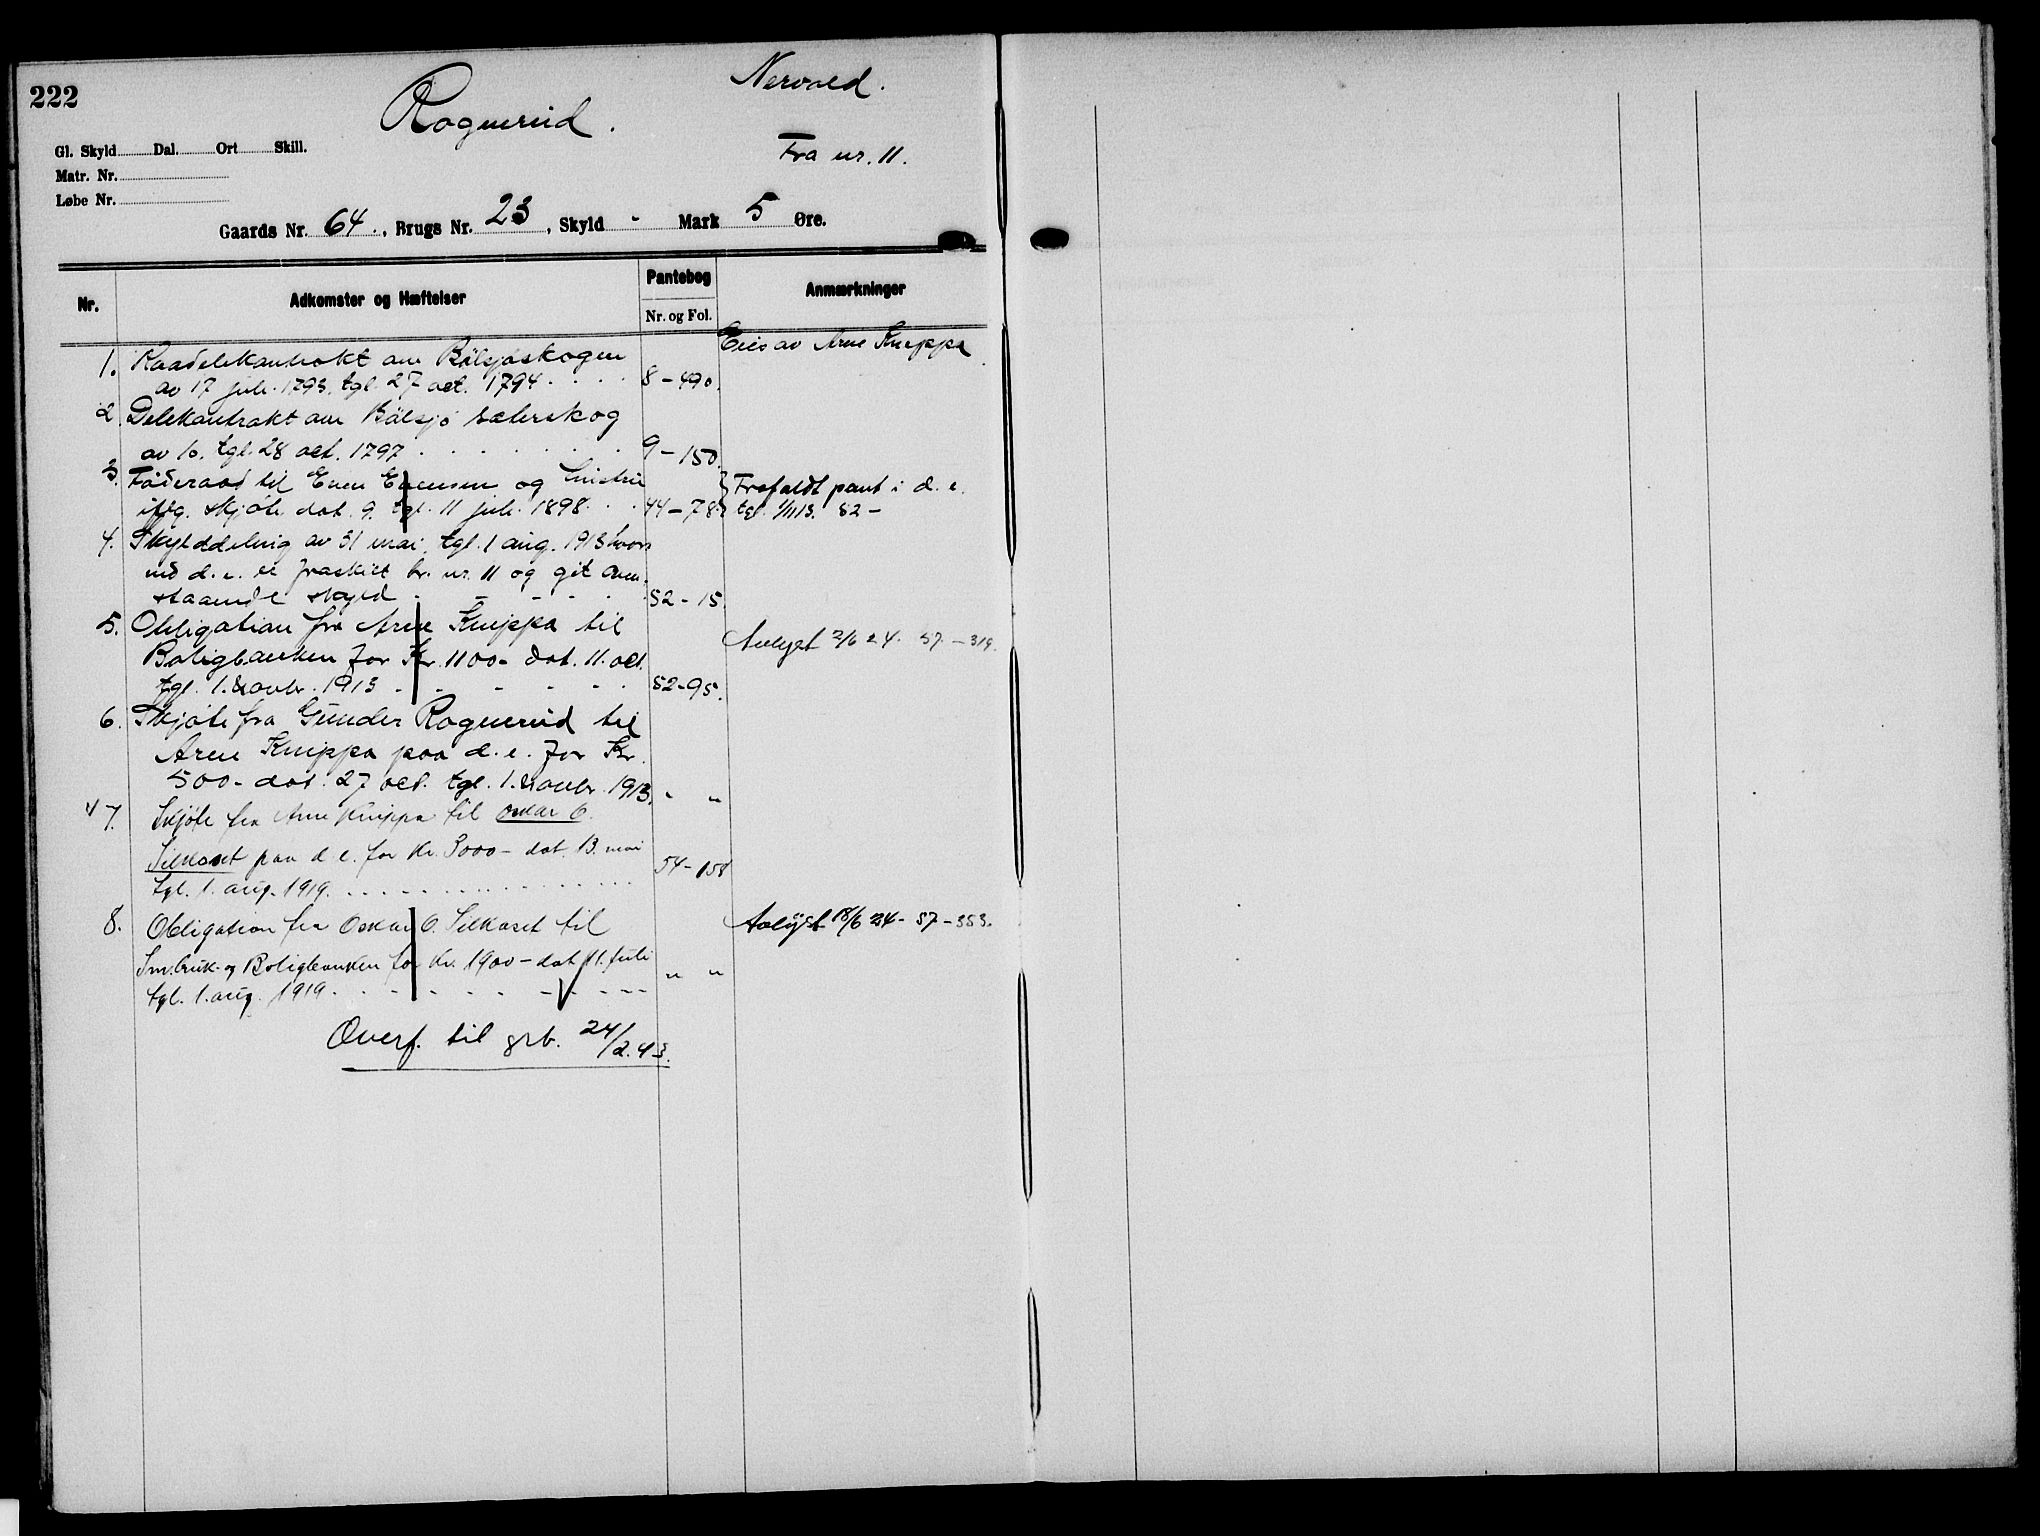 222
Nervold.
Rognerud.
Gl. Skyld Dal. Ort Skill.
Fra nr. 11.
Matr. Nr.
Løbe Nr.
Gaards Nr. 64., Brugs Nr. 23, Skyld - Mark 5 Øre.
Nr. Adkomster og Hæftelser Pantebog Anmærkninger
Nr. og Fol.
Eies av Arne Knippa
1. Raadelekontrakt om Bölsjöskogen
av 17 juli 1793. tgl. 27 oct. 1794 8-490.
2. Delekontrakt om Bölsjö sæterskog
av 10. tgl. 28 oct. 1797 9-150.
3. Föderaad til Even Evensen og hustru
iflg. skjöte dat. 9. tgl. 11 juli 1898 44-78 Frafaldt pant i d. e.
tgl. 1/11 13. 52-
4. Skylddeling av 31 mai, tgl. 1 aug. 1913 hvor
ved d. e. er fraskilt br. nr. 11 og git oven-
staaende skyld 52-15.
5. Obligation fra Arne Knippa til
Avlyst 2/6 24. 57-319.
Boligbanken for Kr. 1100- dat. 11. oct.
tgl. 1. novbr. 1913 52-95.
6. Skjöte fra Gunder Rognerud til
Arne Knippa paa d. e. for Kr.
500- dat. 27 oct. tgl. 1. novbr. 1913. " "
7. Skjöte fra Arne Knippa til Oskar O.
Silkoset paa d. e. for Kr. 3000- dat. 13. mai
tgl. 1. aug. 1919. 54-158
8. Obligation fra Oskar O. Silkoset til Avlyst 18/6 24- 57-353.
Sm.bruk- og Boligbanken for Kr. 1900- dat. 11. juli
tgl. 1. aug. 1919. " "
Overf. til grb. 24/2.43.